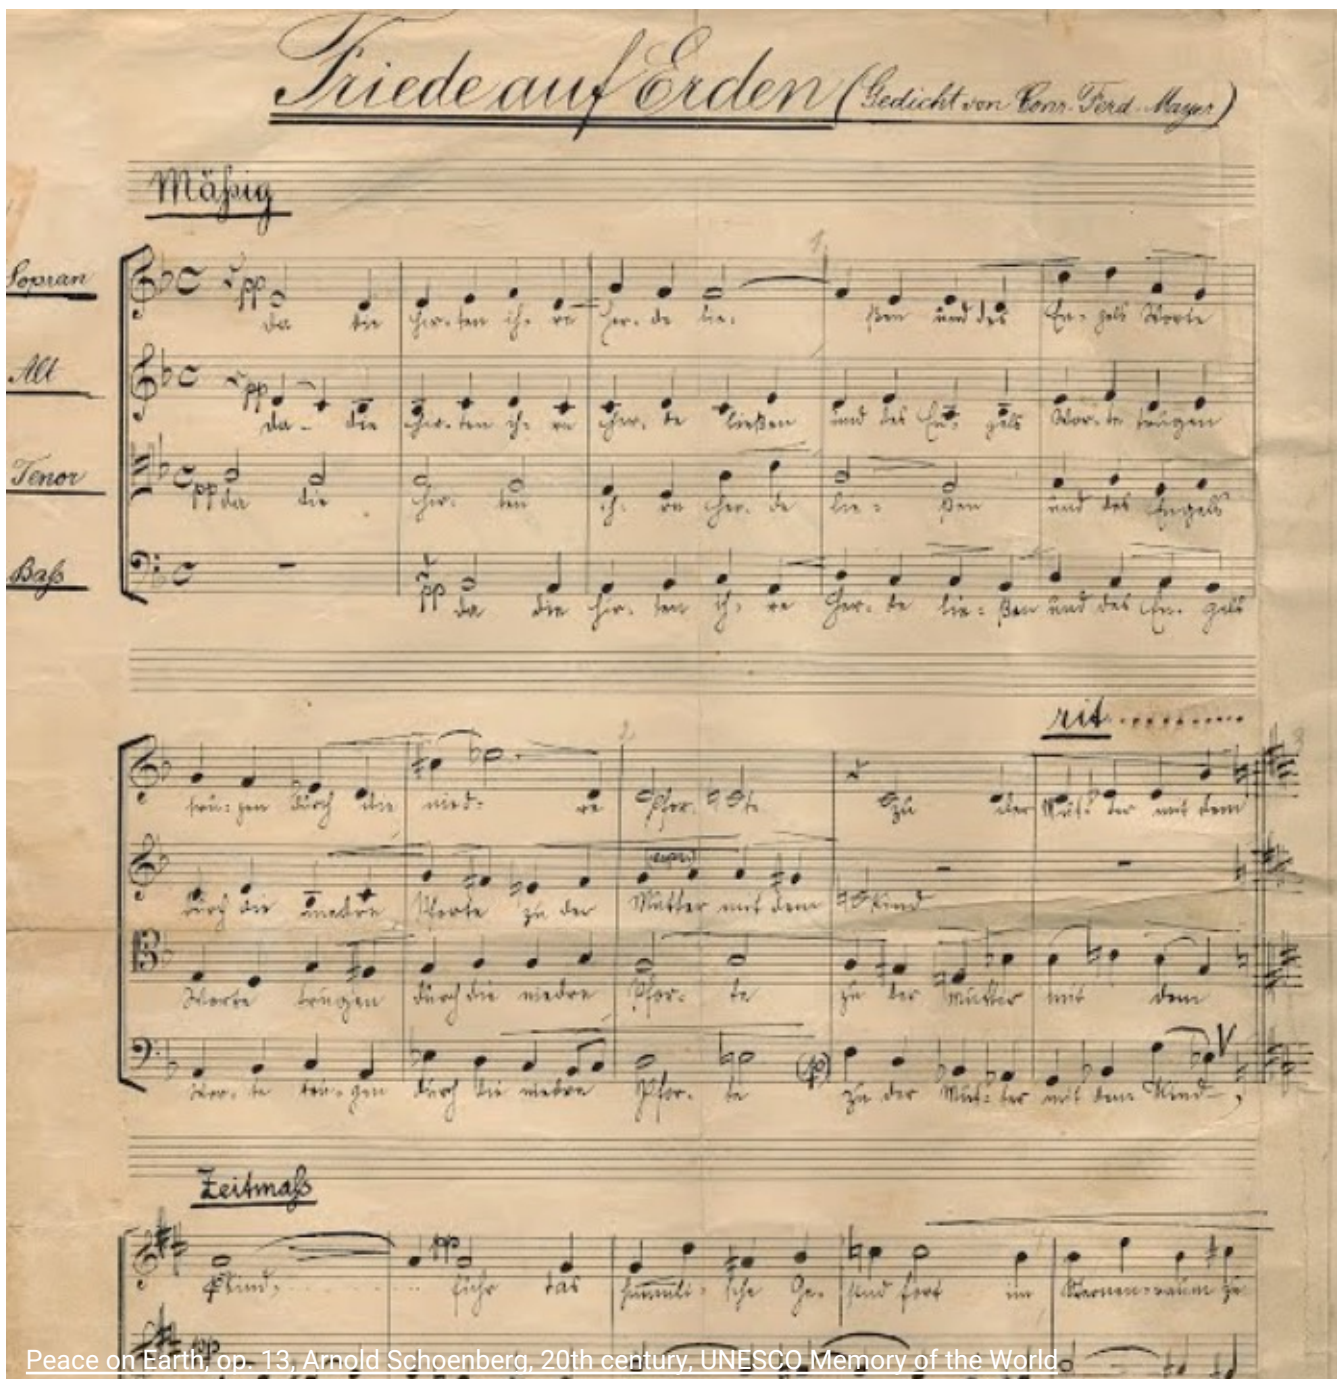 Friede auf Erden (Gedicht von Conr. Ferd. Mayer)
Mäßig
Sopran
pp
da die Hir-ten ih-re Her-de lie- ßen und des En-gels Worte
Alt
pp
da- die Hir-ten ih-re Her-de ließen und des En-gels Wor-te trugen
Tenor
pp
da die Hir-ten ih-re Her-de lie-ßen und des Engels
Baß
pp
da die Hir-ten ih-re Her-de lie-ßen und des En-gels
rit.........
tru-gen durch die nied-re Pfor-te zu der Mut-ter mit dem
durch die niedre Pforte zu der Mutter mit dem Kind
Worte trugen durch die niedre Pfor-te zu der Mutter mit dem
(p)
Wor-te tru-gen durch die niedre Pfor-te zu der Mut-ter mit dem Kind,
Zeitmaß
pp
Kind, fuhr das himmli-sche Ge-sind fort im Sternen-raum zu
pp
Peace on Earth, op. 13, Arnold Schoenberg, 20th century, UNESCO Memory of the World